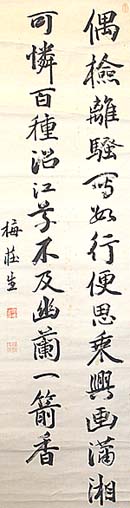 偶檢離騷寫數行便思乘興画瀟湘
可憐百種沿江草不及幽蘭一箭香
梅莊生